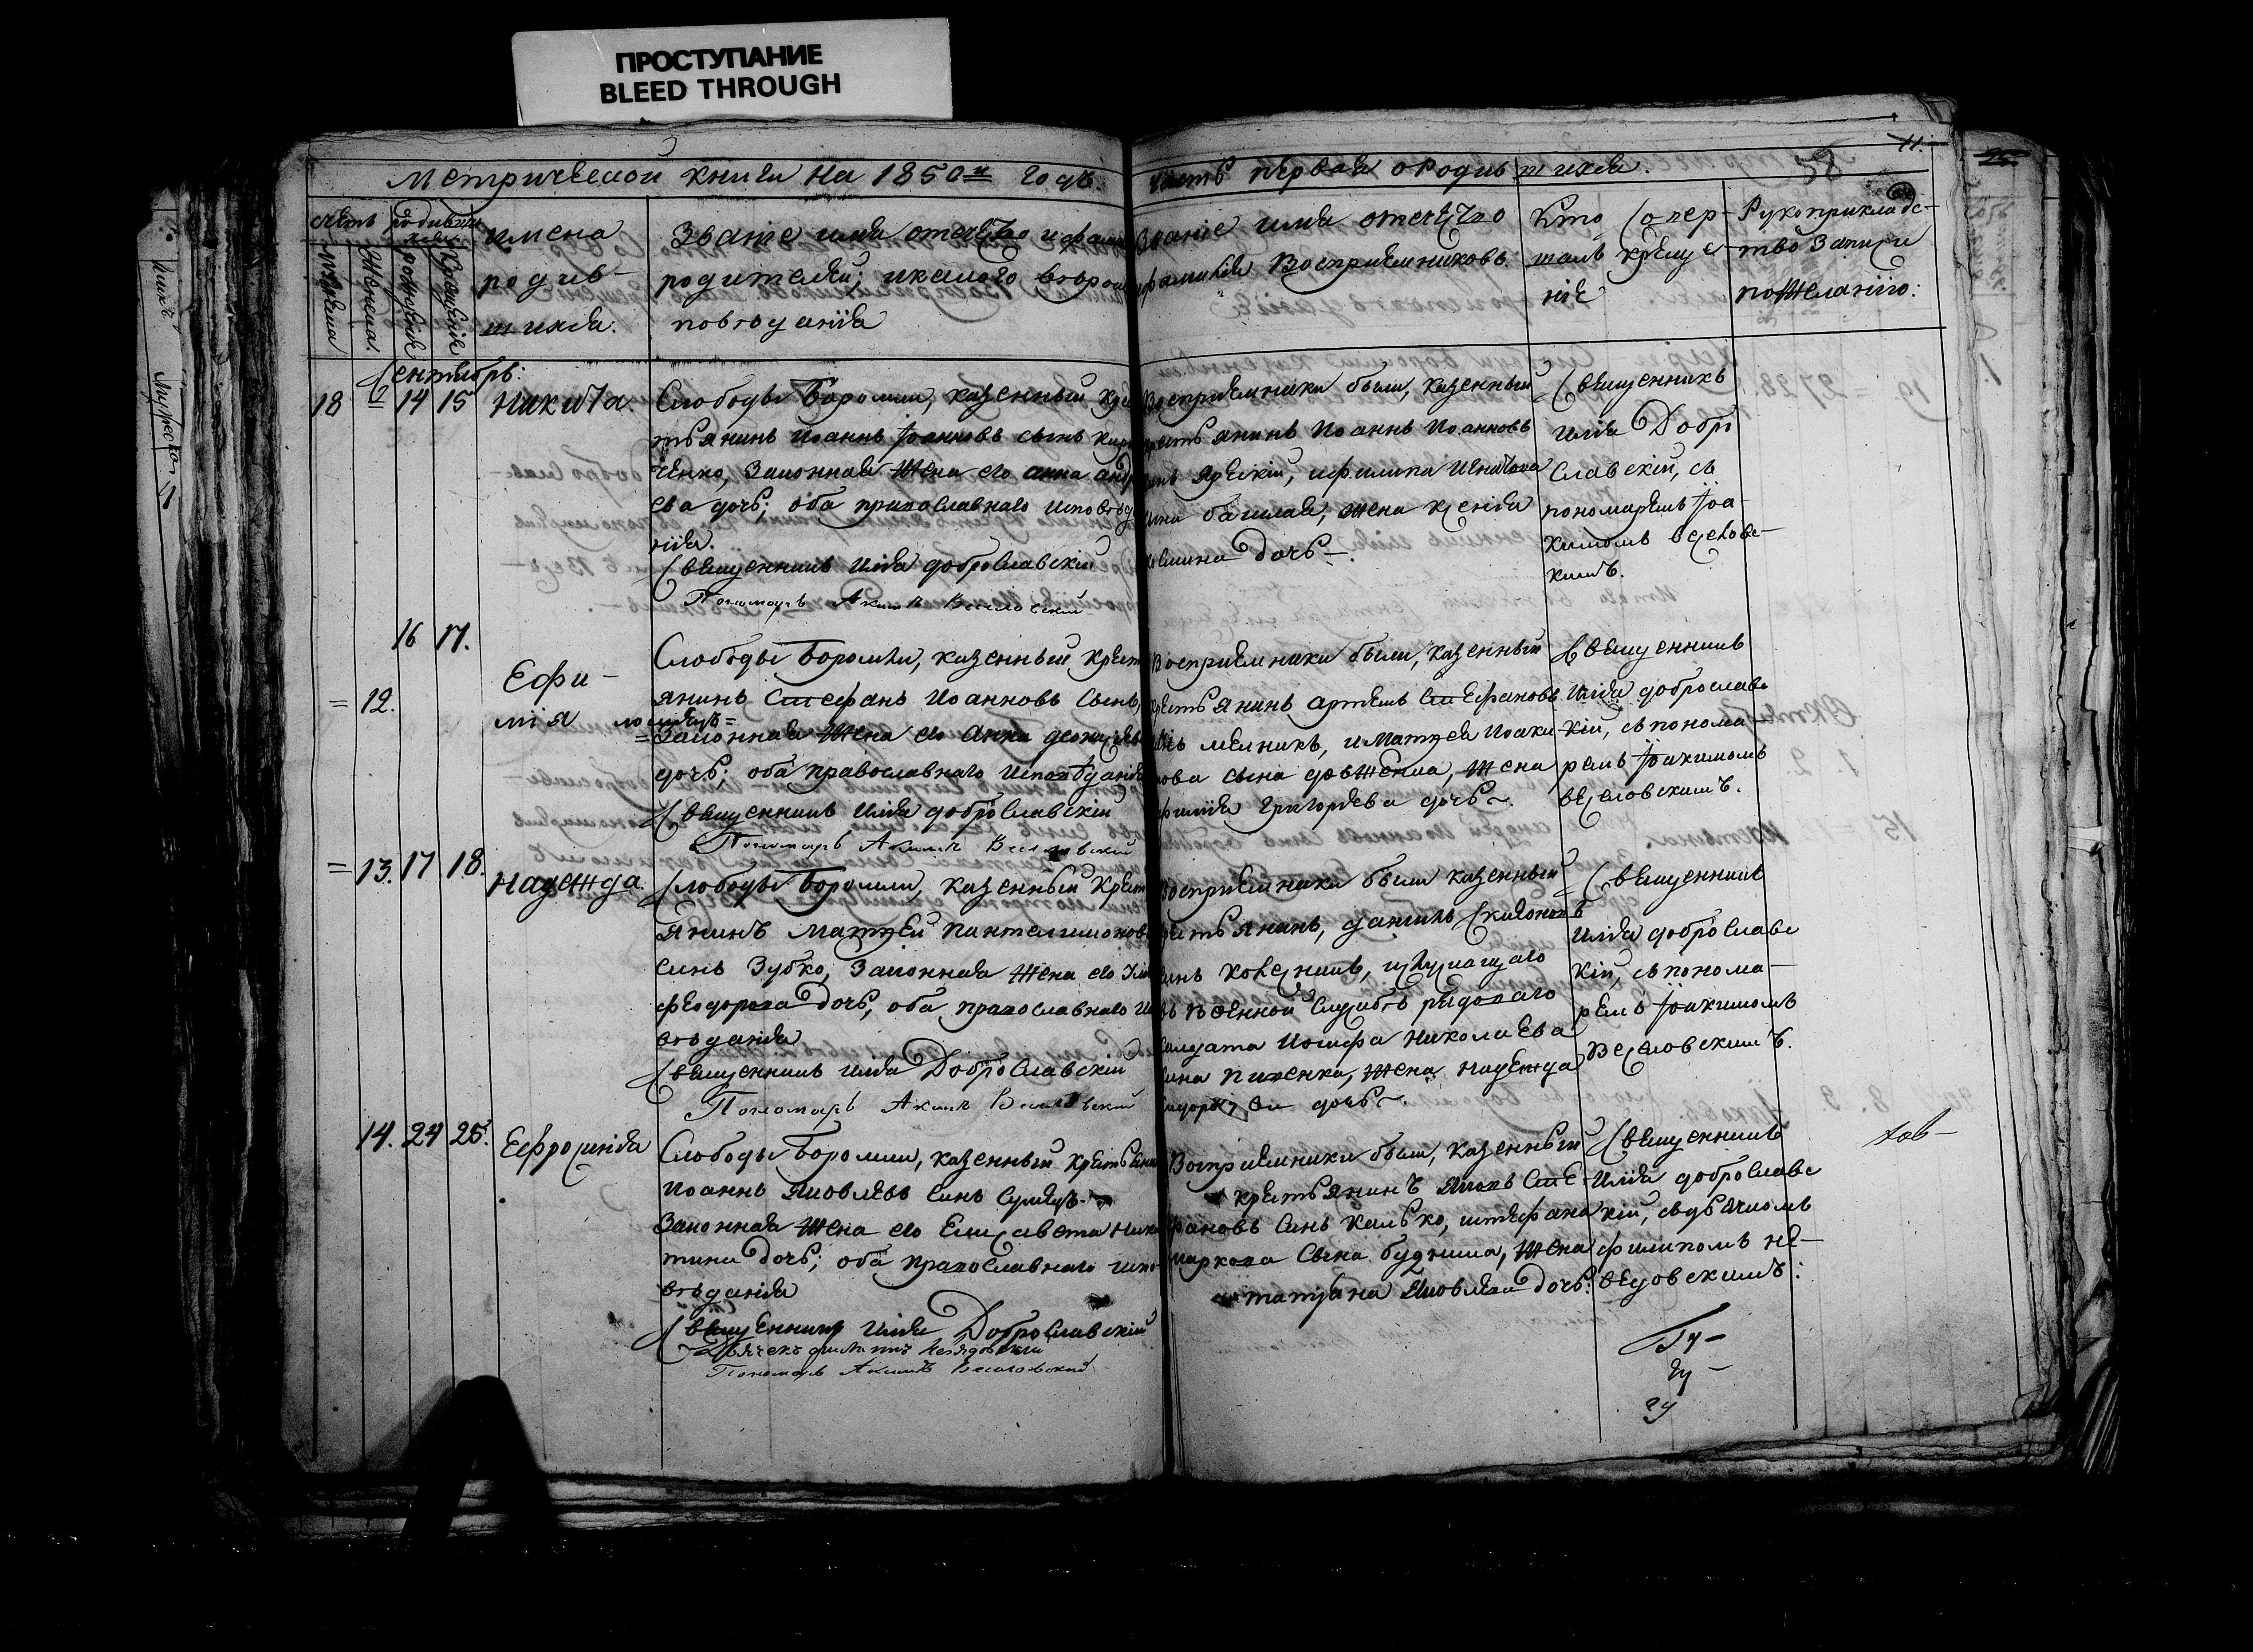 ПРОСТУПАНИЕ
BLEED THROUGH
Метрической книги на 1850й годъ.
часть первая о родившихся.
11.
58
счетъ
родившихся
Мужеска
Женска.
рожденіе
Крещеніе
имена
родив-
шихся.
Званіе имя отечество и фами
родителей; и какого вѣроис
повѣданія
Званіе имя отечество
фамилія Воспріемниковъ.
Кто совер-
шалъ креще
ніе
Рукоприкладс-
тво записи
по желанію:
Сентябрь:
18 = 14 15 Никита.
Слободы Боромли, казенный Крес
тьянинъ Иоаннъ Іоанновъ сынъ Кир
ченко, Законная Жена его анна анд
ева дочь; оба православнаго исповѣд
нія.
Священникъ Илія доброславскій
Пономарь Акимъ Веселовскій
Воспріемники были, казенный
крестьянинъ Иоаннъ Иоанновъ
сынъ Ярескій, и филипа
сына жена ксенія
дочь.
Священникъ
илія Добро
славскій, съ
пономаремъ Іоа-
кимомъ Веселовс-
кимъ.
= 12. 16 17. Ефи-
мія
Слободы Боромли, казенный Крест
янинъ Стефанъ Иоанновъ Сынъ,
Законная Жена его Анна
дочь; оба православнаго исповѣданія
Священникъ Илія доброславскій
Пономарь Акимъ Веселовскій
Воспріемники были, казенный
крестьянинъ артемъ Стефановъ
сынъ мелникъ, и Матѳея Иоаки
мова сына довженка, Жена
григорьева дочь.
Священникъ
Илія доброславс
кій, съ понома
ремъ Іоакимомъ
веселовскимъ.
= 13. 17 18. Надежда.
Слободы Боромли, казенный Крест
янинъ Матѳей Пантелимонов
сынъ Зубко, Законная Жена его
феодорова дочь, оба православнаго ис
вѣданія
Священникъ илія Доброславскій
Пономарь Акимъ Веселовскій
Воспріемники были казенный
крестьянинъ, даніилъ
сынъ
въ военной службѣ рядоваго
салдата Иосифа Николаева
сына Жена Надежда
дочь.
Священникъ
илія доброславс
кій, съ понома-
ремъ Іоакимомъ
Веселовскимъ.
14. 24 25. Ефросинія
Слободы Боромли, казенный Крестьянин
Иоаннъ Яковлевъ сынъ
Законная Жена его Елисавета Ники
тина дочь; оба православнаго испо
вѣданія
Священникъ илія Доброславскій
Дьячекъ филиппъ Невядовскій
Пономарь Акимъ Веселовскій
Воспріемники были, казенный
крестьянинъ Яковъ Сте
фановъ сынъ Калько, и стефана
маркова сына жена
татіана Яковлева дочь:
Священникъ
Илія доброславс
кій, съ дьячкомъ
филипомъ не-
вядовскимъ: